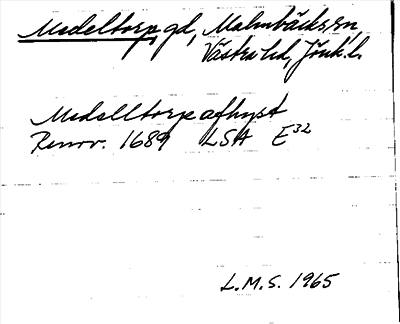 Medeltorp, gd, Malmbäcks sn,
Västra hd, Jönk. l.
Medelltorp afhyst
Renov. 1689 LSA E32
L.M.S. 1965